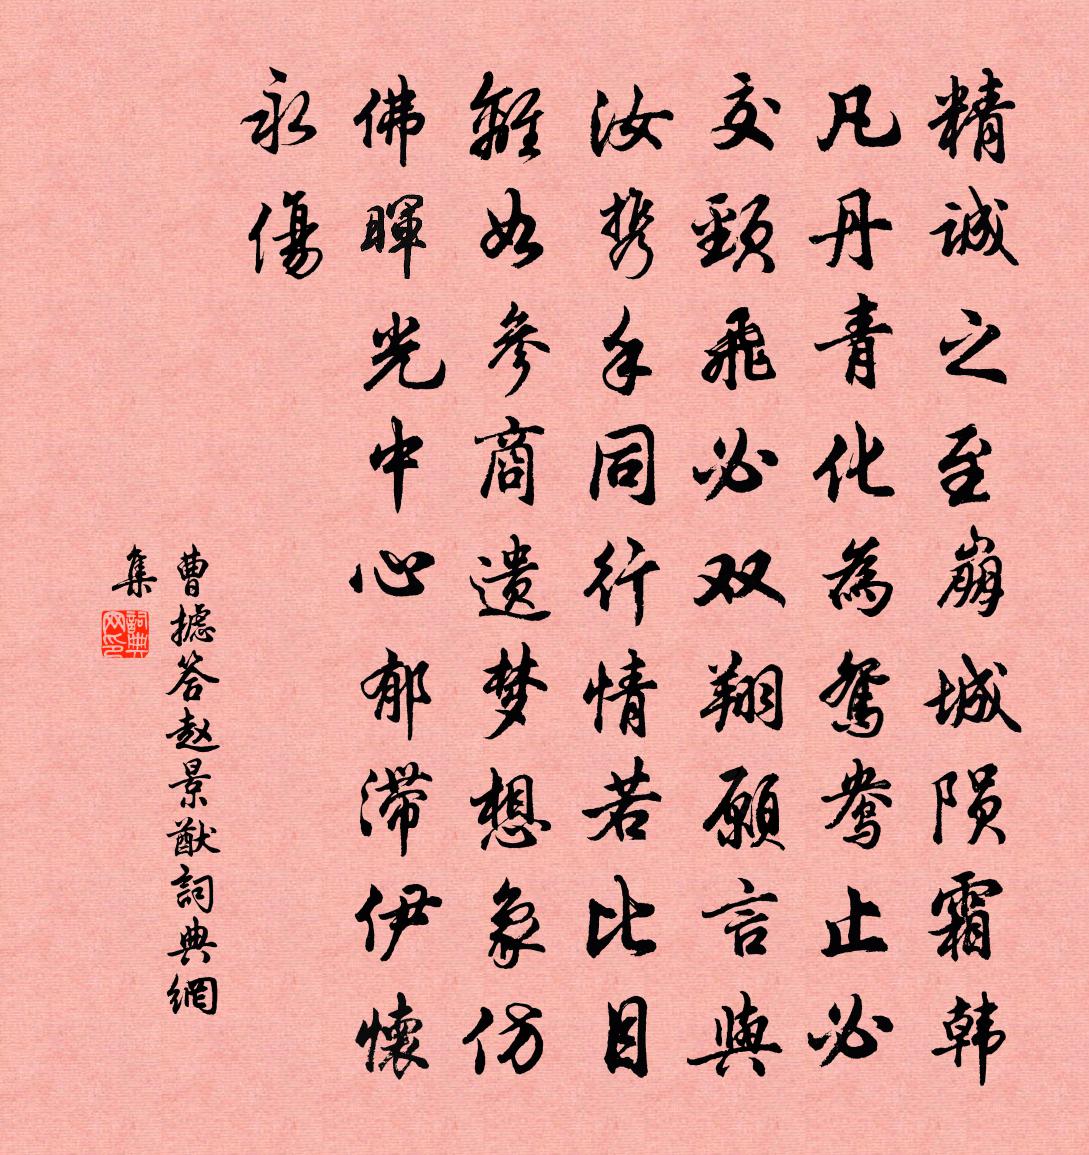 精诚之至崩城陨霜韩
凡丹青化為鴛鴦止必
交頸飛必双翔願言與
汝携手同行情若比目
離如參商遗梦想象仿
佛暉光中心郁滞伊懷
永傷
曹摅答赵景猷詞典網
集
詞典
网印